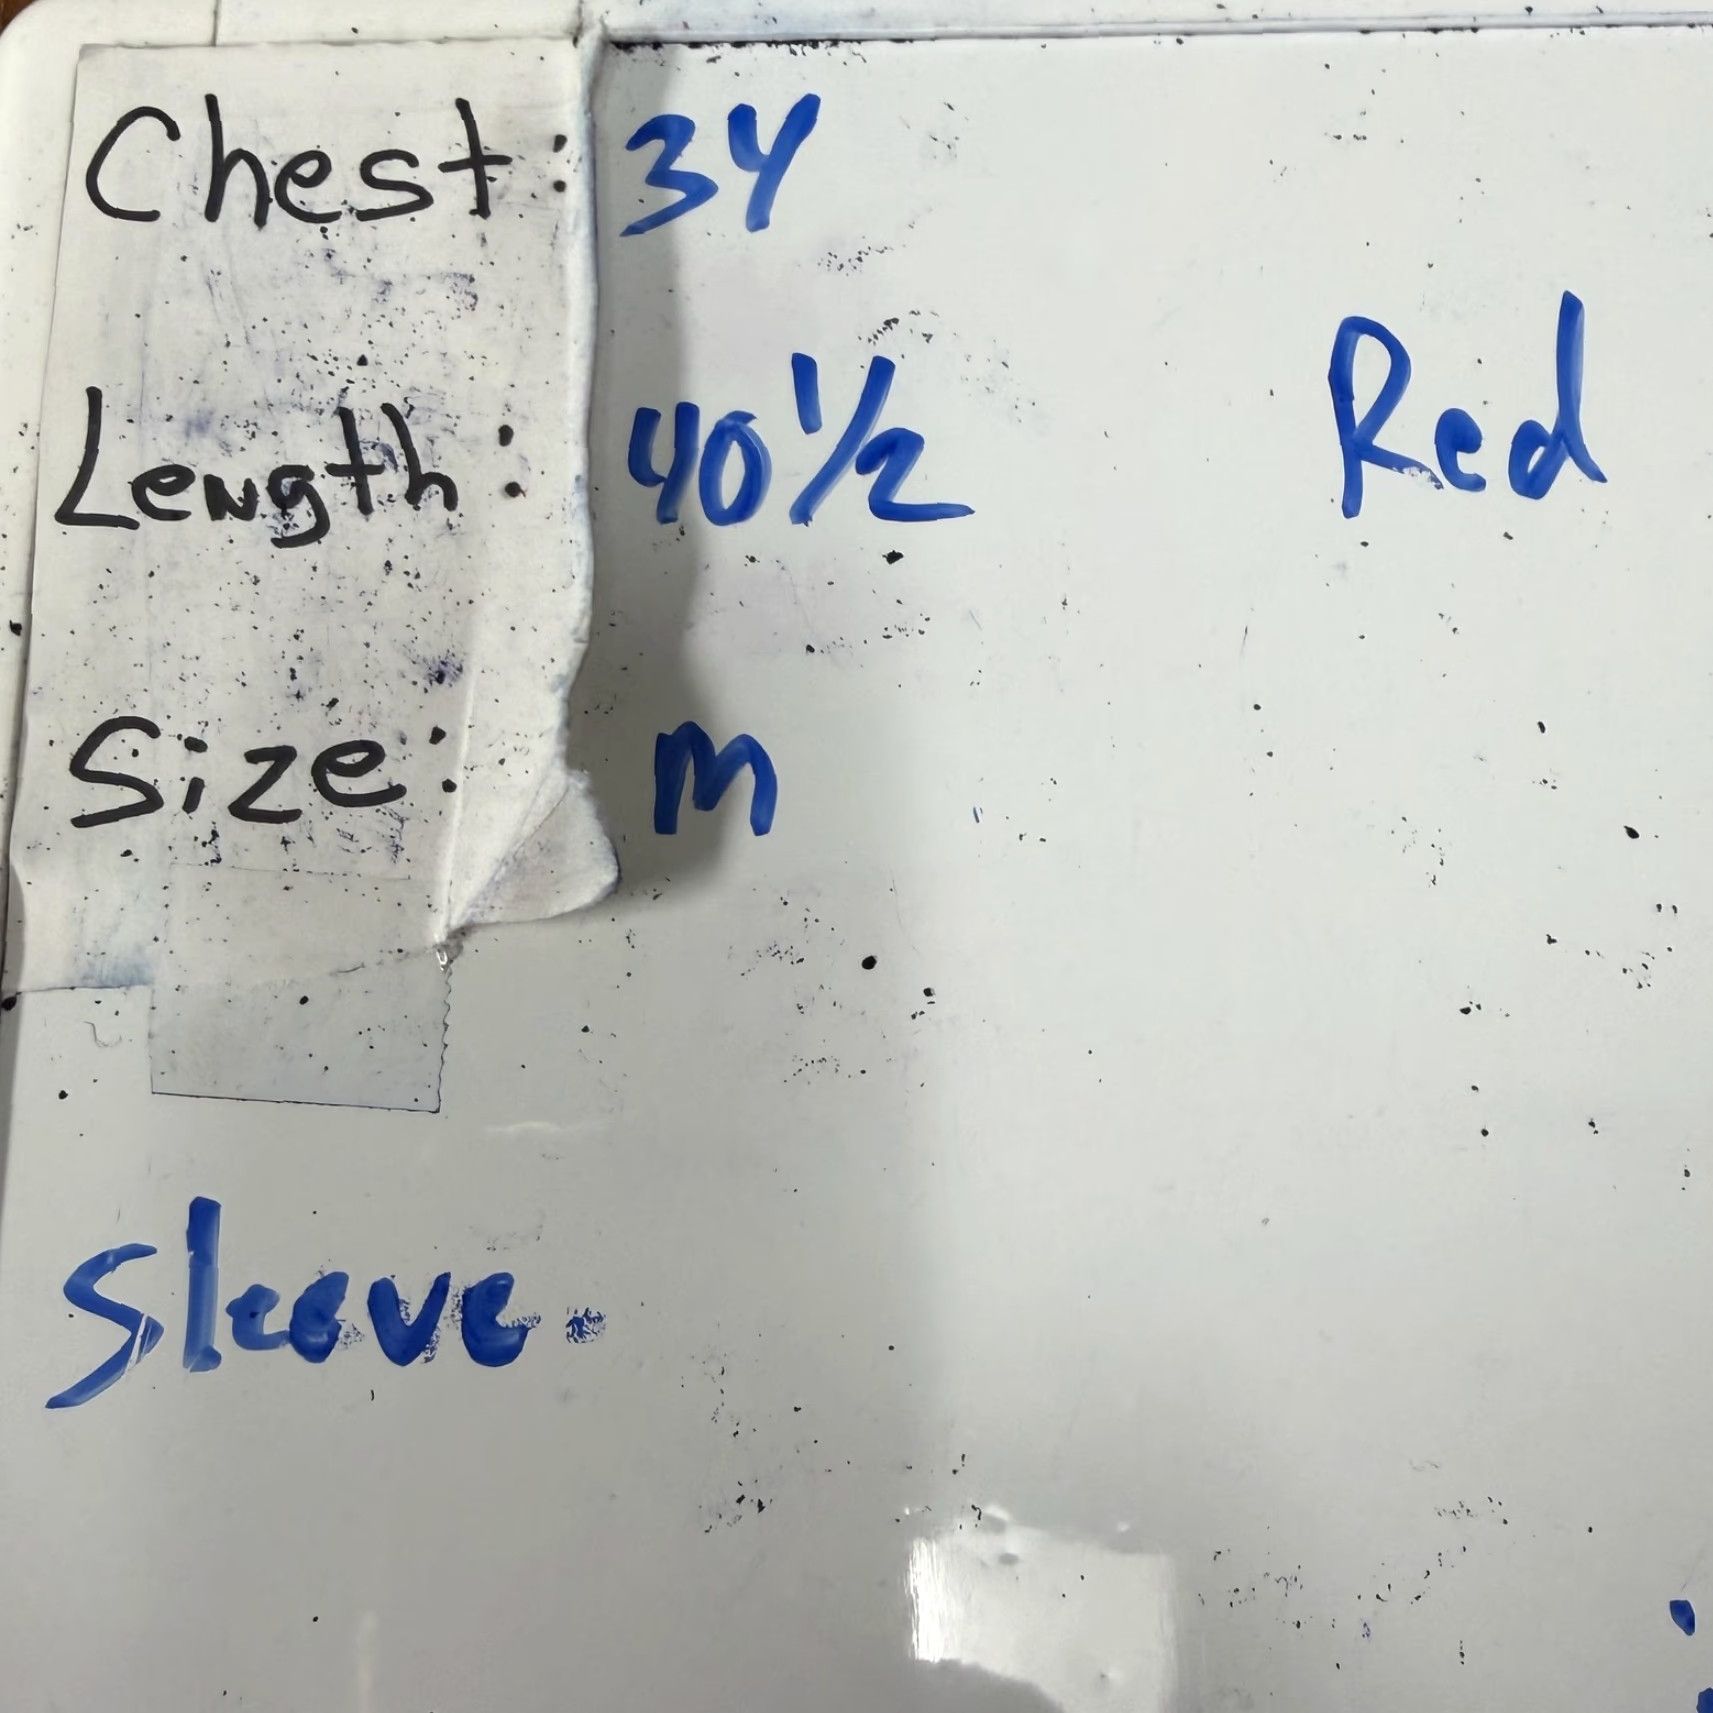 Chest: 34
Length: 40 1/2 Red
Size: M
Sleeve.